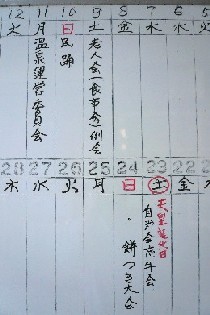 12 11 10 9 8 7 6 5
火 月 日 土 金 木 水 火
老人会(食事会)例会
民踊
温泉運営委員会
28 27 26 25 24 23 22
木 水 火 月 日 土 金 木
天皇誕生日
自治会忘年会
・餅つき大会